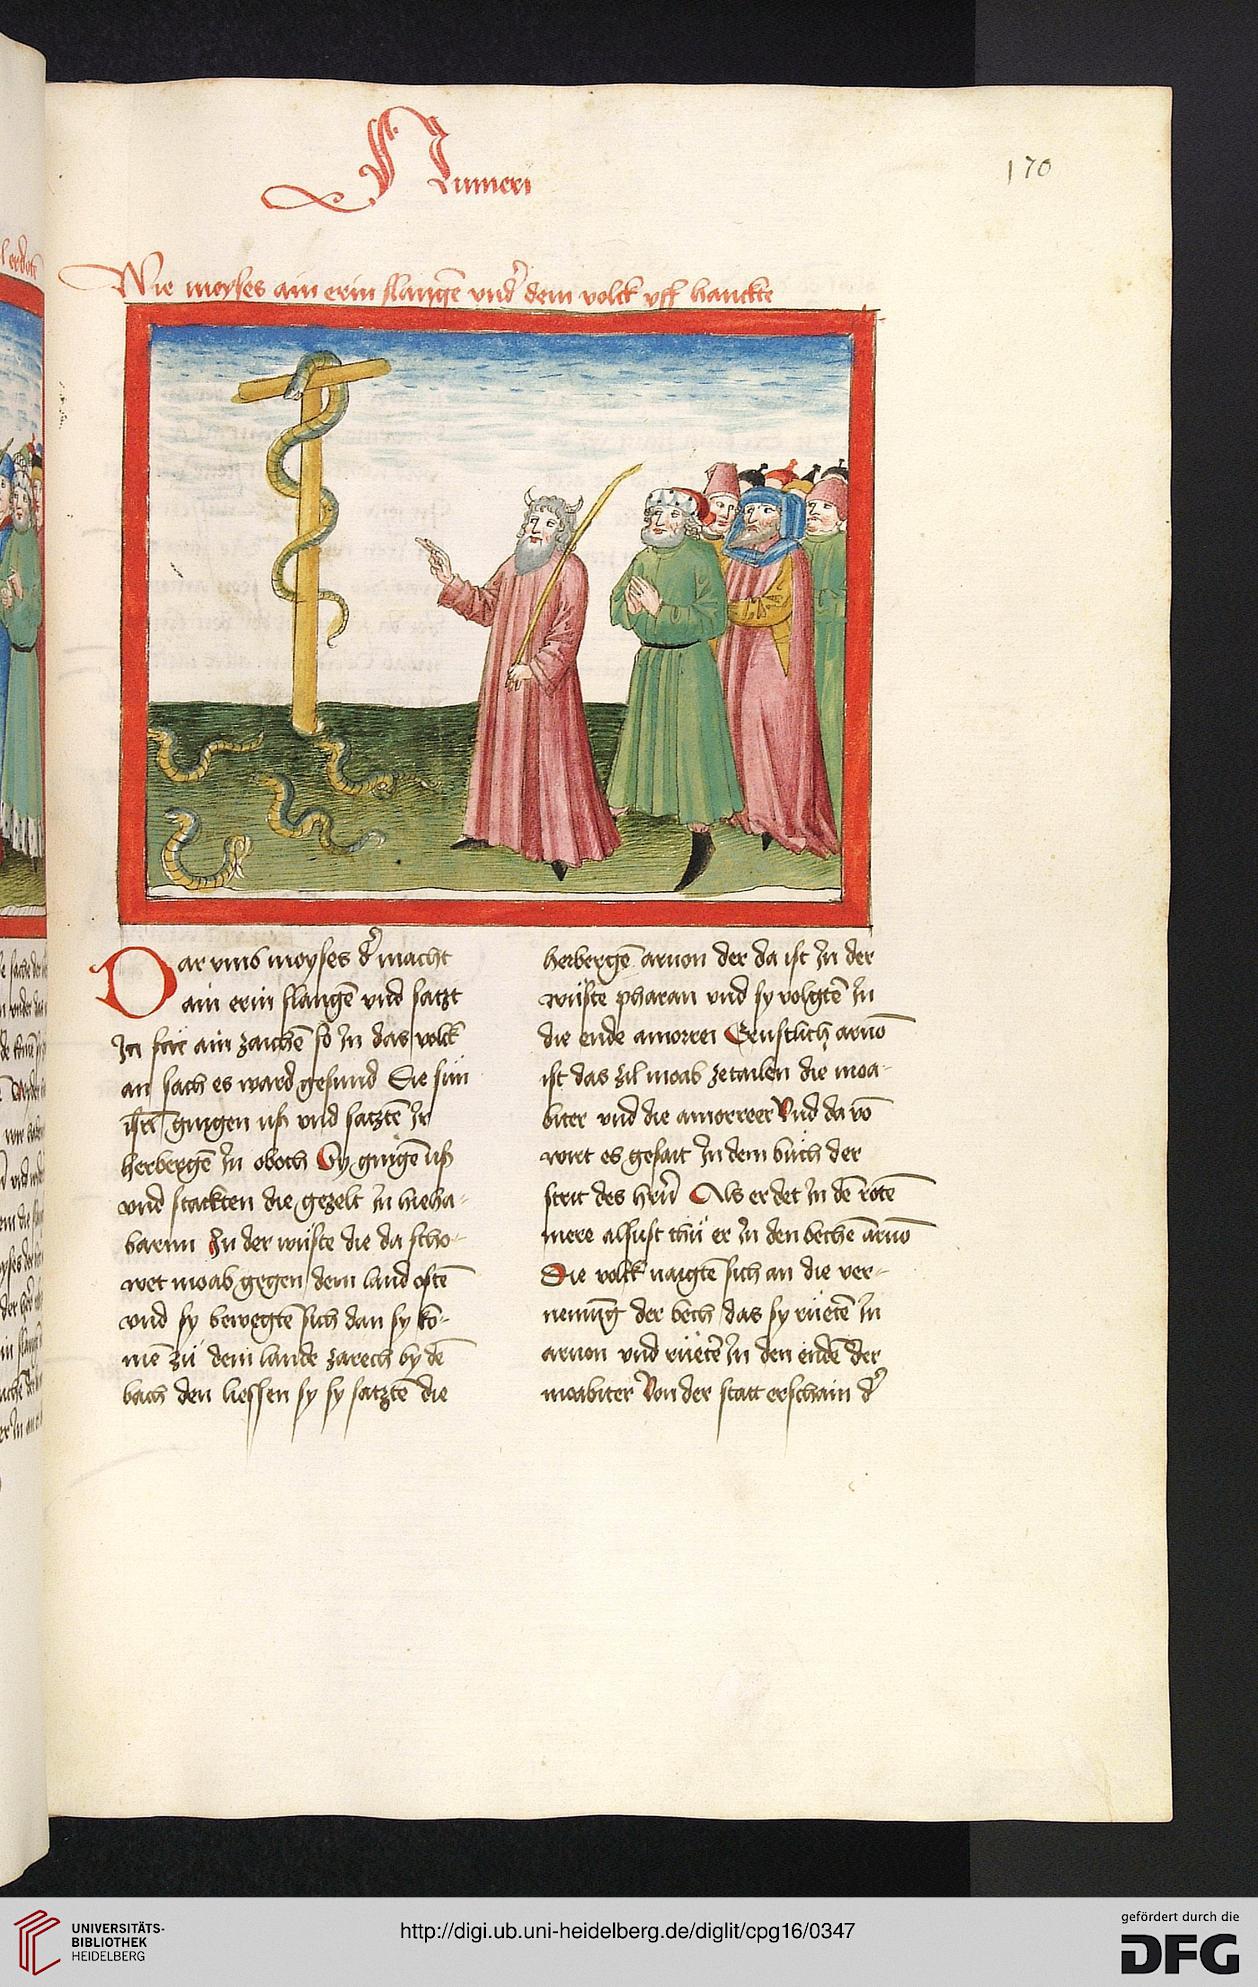 Numeri
170
Wie moyses ain erin slangē vnd̕ dem volck vff hanckte
Dar vmb moyses d̕ macht
ain erin slangē vnd satzt
In für ain zaichē so In das volck
an sach es ward gesund Die sün
isrl̄ gingen uß vnd satztē Ir
herbergē In oboth Sy gingē uß
vnd stackten die gezelt In hieha-
barim In der wüste die da scho-
wet moab gegen dem land ostē
vnd sy bewegtē sich dan sy kō-
mē zü dem lande zarech by dē
bach den liessen sy sy satztē die
herbergē arnon der da ist In der
wüste pharan vnd sy volgtē In
die ende amorren Genstlich arnō
ist das zil moab zetailen die moa-
biter vnd die amorreer Vnd da vō
wirt es gesait In dem büch der
strit des hr̄n Als er det In dē rotē
mere alsust thü er In den bechē arnō
Die volck naigtē sich an die ver-
nemūg der bech das sy rüetē In
arnon vnd rüetē In den endē der
moabiter Von der statt erschain d̕
UNIVERSITÄTS-
BIBLIOTHEK
HEIDELBERG
http://digi.ub.uni-heidelberg.de/diglit/cpg16/0347
gefördert durch die
DFG